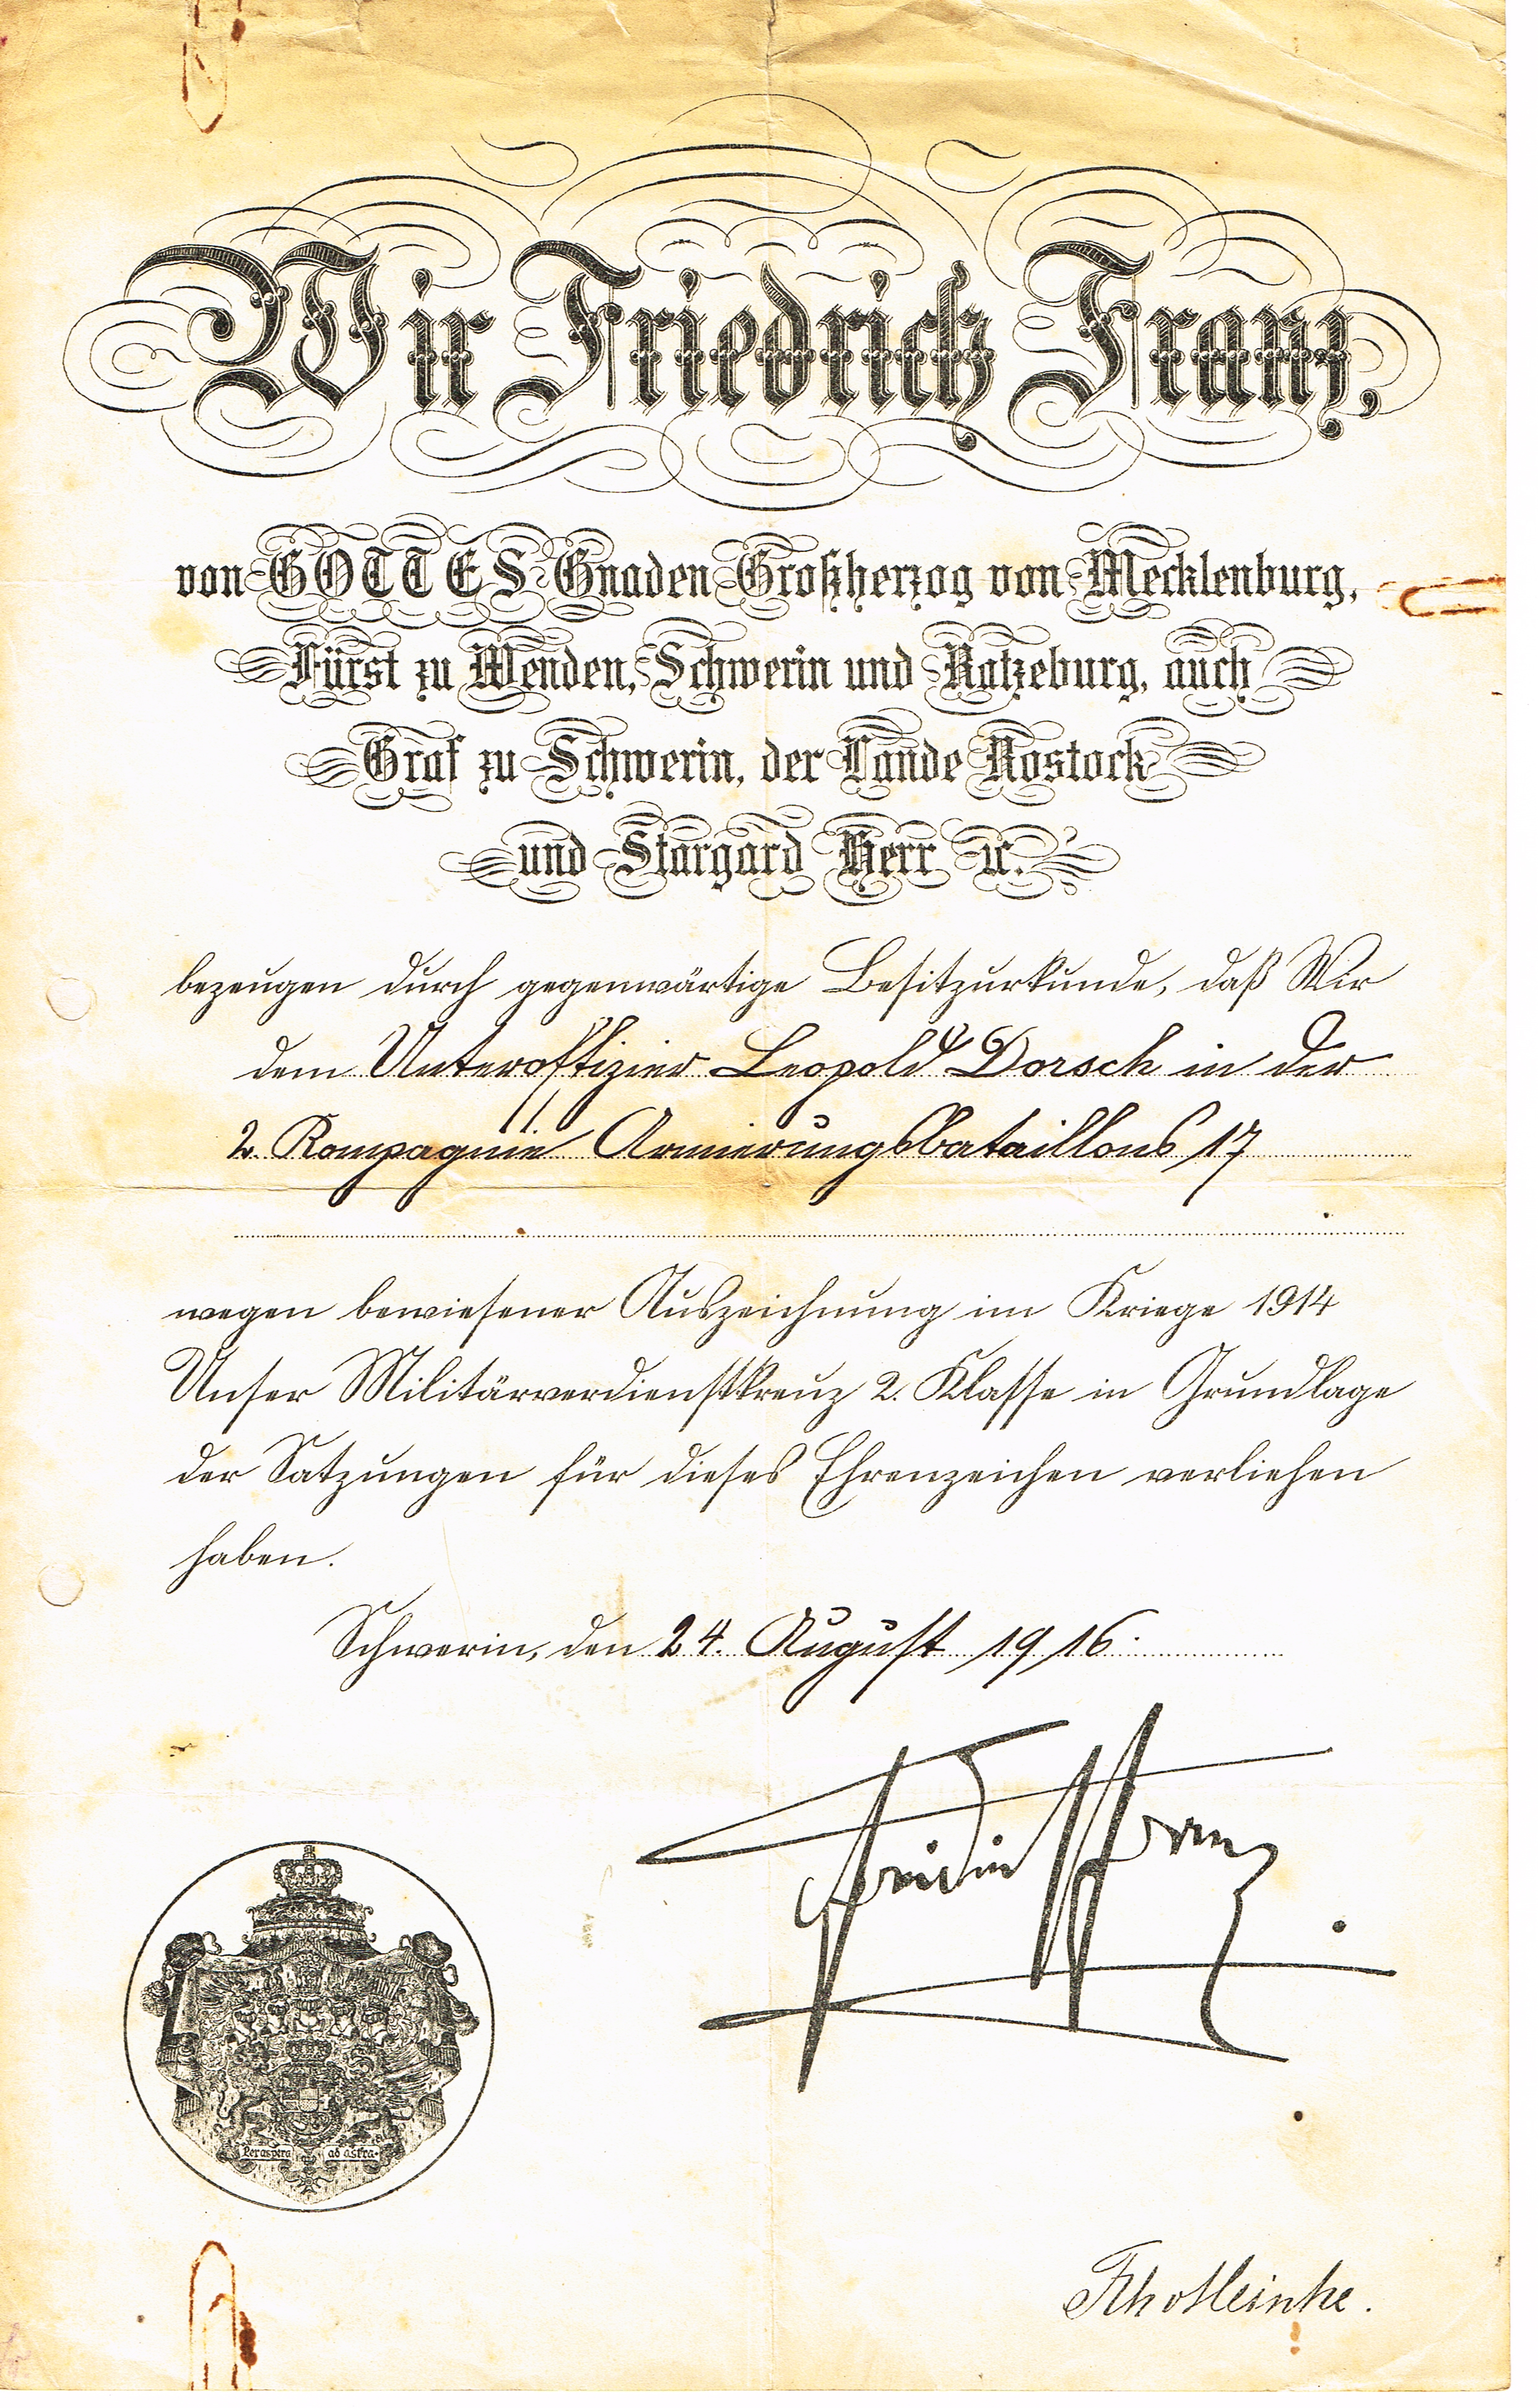 Wir Friedrich Franz,
von GOTTES Gnaden Großherzog von Mecklenburg,
Fürst zu Wenden, Schwerin und Ratzeburg, auch
Graf zu Schwerin, der Lande Rostock
und Stargard Herr ꝛc.
bezeugen durch gegenwärtige Besitzurkunde, daß Wir
dem Unteroffizier Leopold Dorsch in der
2. Kompagnie Armierungsbataillons 17
wegen bewiesener Auszeichnung im Kriege 1914
Unser Militärverdienstkreuz 2. Klasse in Grundlage
der Satzungen für dieses Ehrenzeichen verliehen
haben.
Schwerin, den 24. August 1916.
Friedrich Franz
Per aspera ad astra